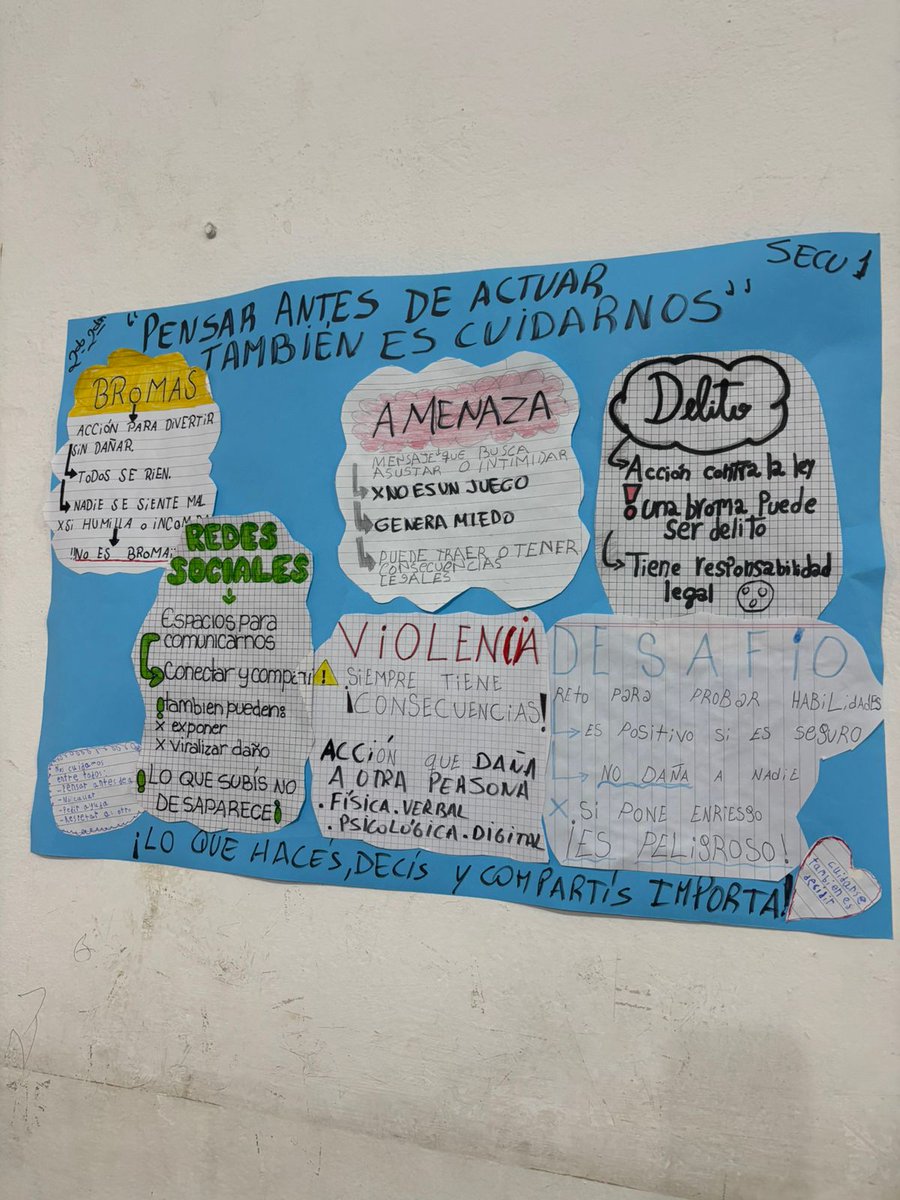 SECU 1
"PENSAR ANTES DE ACTUAR
TAMBIÉN ES CUIDARNOS"
BROMAS
ACCIÓN PARA DIVERTIR
SIN DAÑAR.
TODOS SE RIEN.
NADIE SE SIENTE MAL
X SI HUMILLA O INCOMODA
!!NO ES BROMA!
AMENAZA
MENSAJE QUE BUSCA
ASUSTAR O INTIMIDAR
X NO ES UN JUEGO
GENERA MIEDO
PUEDE TRAER O TENER
CONSECUENCIAS
LEGALES
Delito
Acción contra la ley
! una broma Puede
ser delito
Tiene responsabilidad
legal
REDES
SOCIALES
Espacios para
comunicarnos
Conectar y compartir
!también pueden:
X exponer
X viralizar daño
!LO QUE SUBÍS NO
DESAPARECE!
VIOLENCIA
SIEMPRE TIENE
¡CONSECUENCIAS!
ACCIÓN QUE DAÑA
A OTRA PERSONA
. FÍSICA . VERBAL
. PSICOLÓGICA . DIGITAL
DESAFÍO
RETO PARA PROBAR HABILIDADES
ES POSITIVO SI ES SEGURO
NO DAÑA A NADIE
X SI PONE ENRIESGO
¡ES PELIGROSO!
Nos cuidamos
entre todos:
- Pensar antes de
- No callar
- Pedir ayuda
- Respetar al otro
cuidarse
también es
decidir
¡LO QUE HACÉS, DECÍS Y COMPARTÍS IMPORTA!